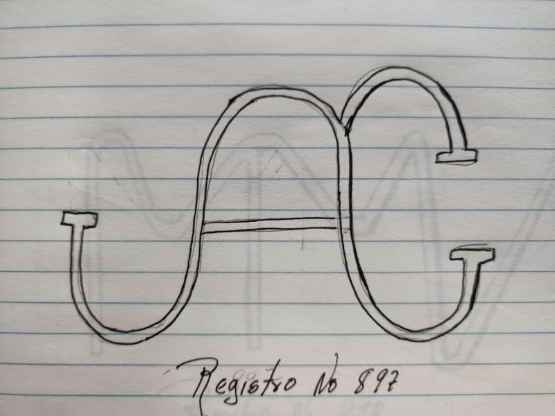 AC
Registro No 897